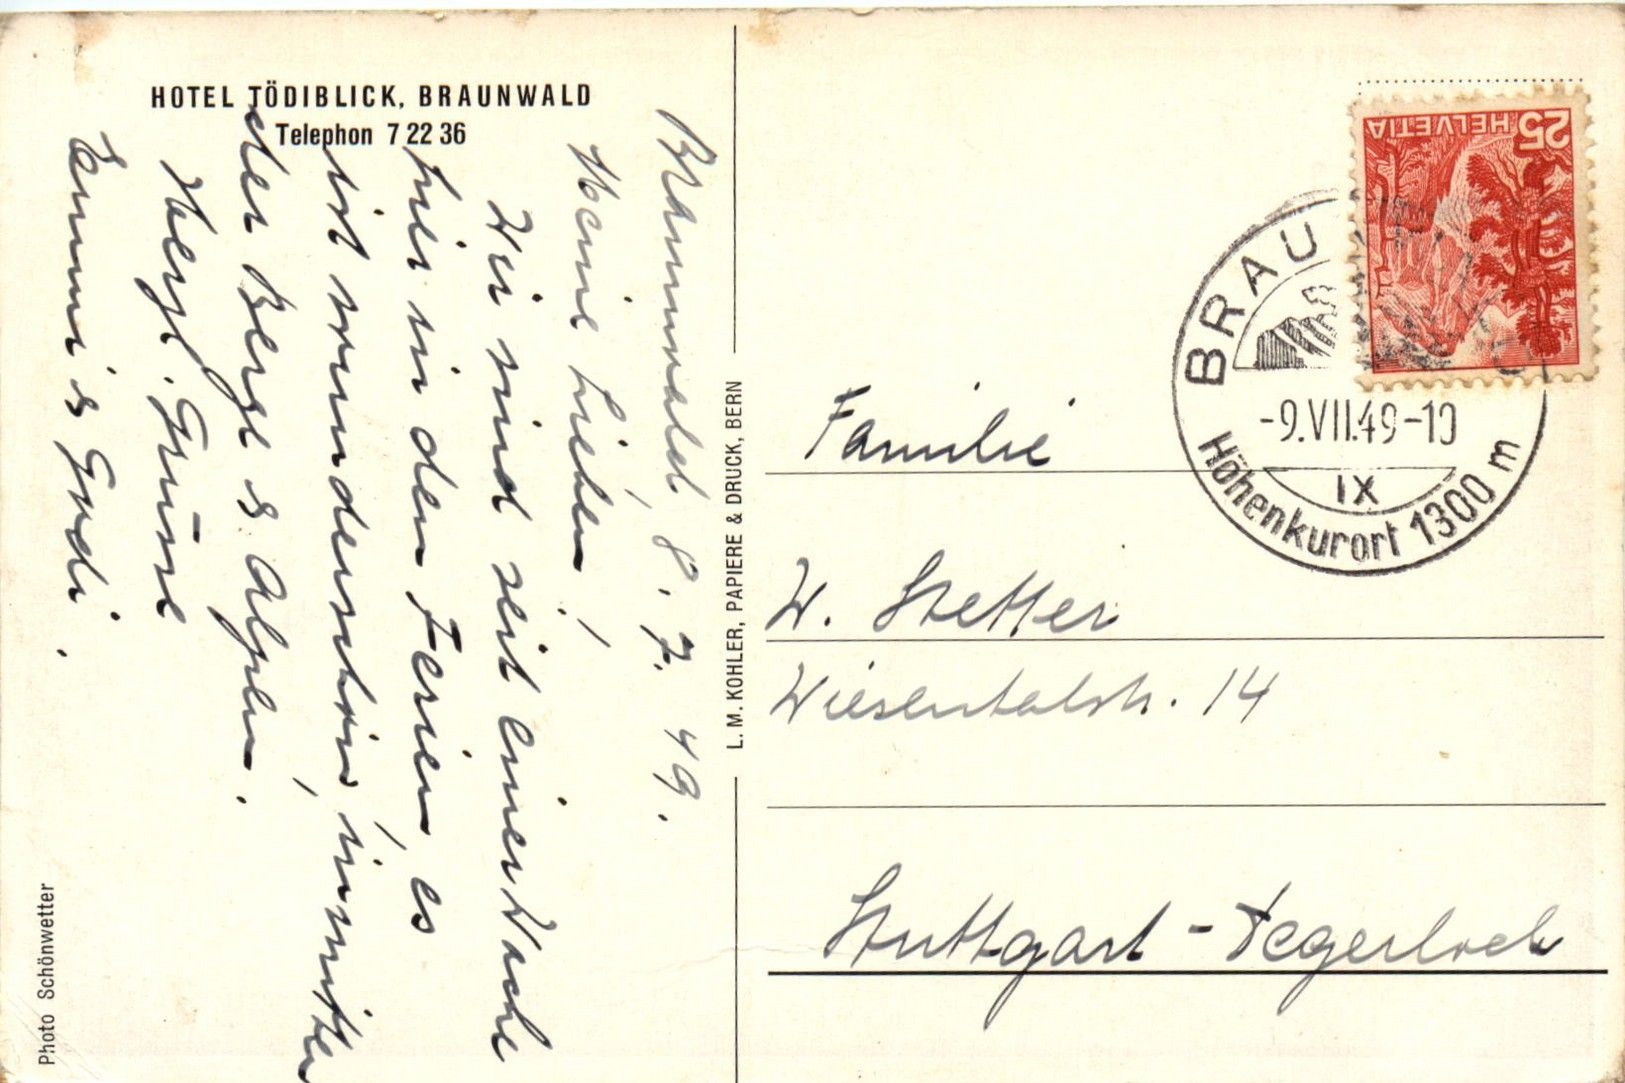 HOTEL TÖDIBLICK, BRAUNWALD
Telephon 7 22 36
Braunwald, 8. 7. 49.
Meine Lieben!
Wir sind seit einer Woche
hier in den Ferien, es
ist wunderschön, inmitten
der Berge & Alpen.
Herzl. Grüsse
Emmi & Godi.
Photo Schönwetter
L. M. KOHLER, PAPIERE & DRUCK, BERN
HELVETIA 25
BRAU
-9.VII.49-10
IX
Höhenkurort 1300 m
Familie
W. Stetter
Wiesentalstr. 14
Stuttgart-Degerloch